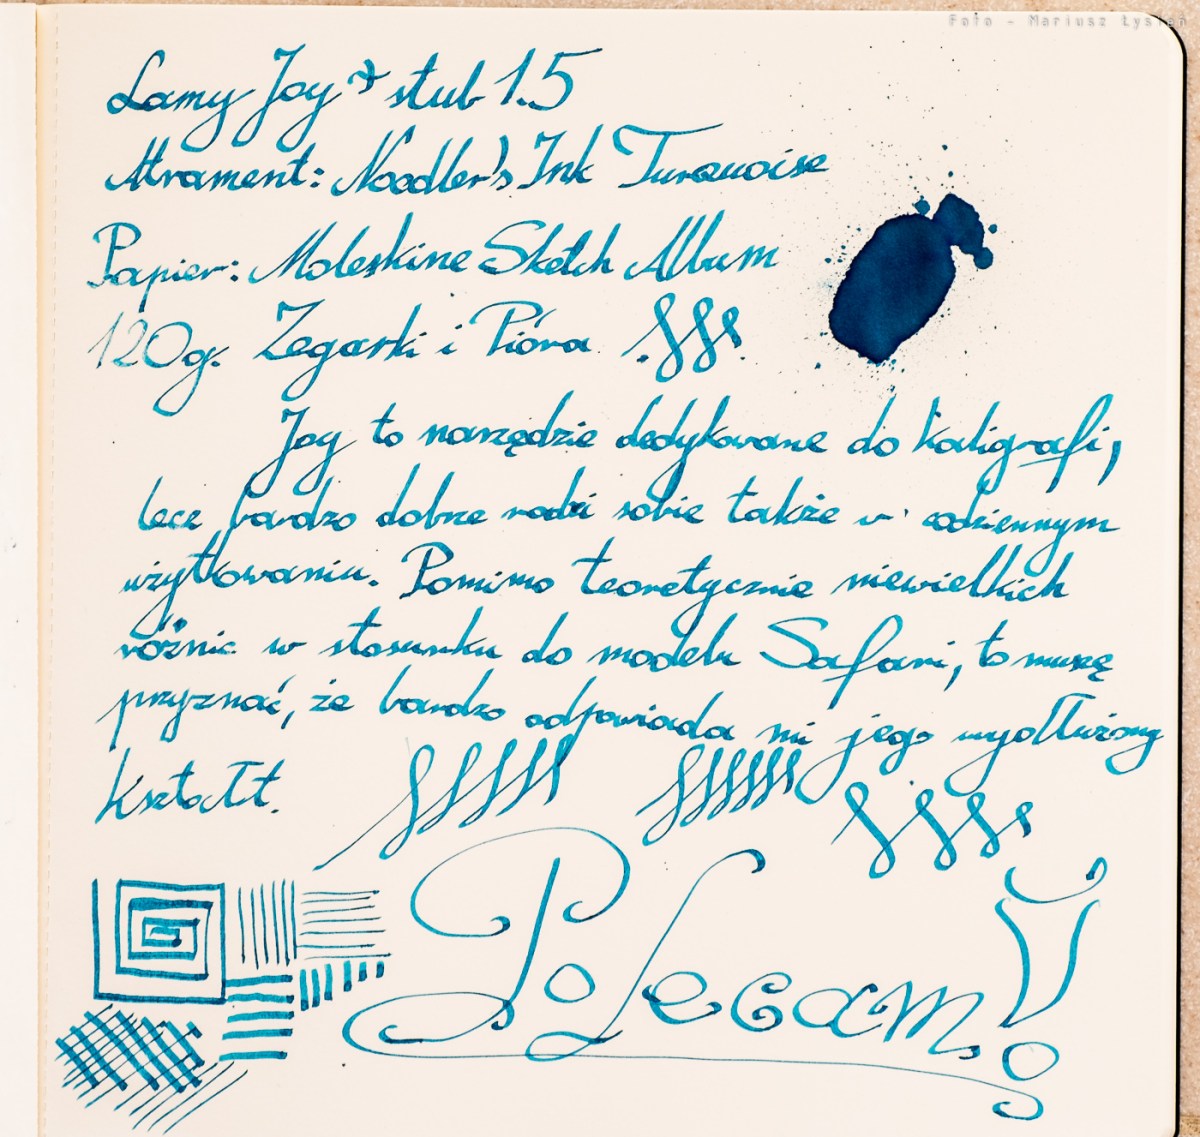 Foto - Mariusz Łysień
Lamy Joy stub 1.5
Atrament: Noodler's Ink Turquoise
Papier: Moleskine Sketch Album
120g. Zegarki i Pióra
Joy to narzędzie dedykowane do kaligrafi,
lecz bardzo dobrze radzi sobie także w codziennym
użytkowaniu. Pomimo teoretycznie niewielkich
różnic w stosunku do modelu Safari, to muszę
przyznać, że bardzo odpowiada mi jego wydłużony
kształt.
Polecam!